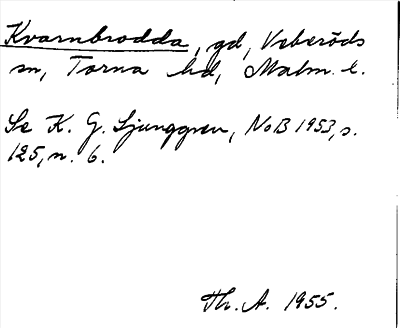 Kvarnbrodda, gd, Veberöds
sn, Torna hd, Malm. l.
Se K. G. Ljunggren, NoB 1953, s.
125, n. 6.
Th. A. 1955.